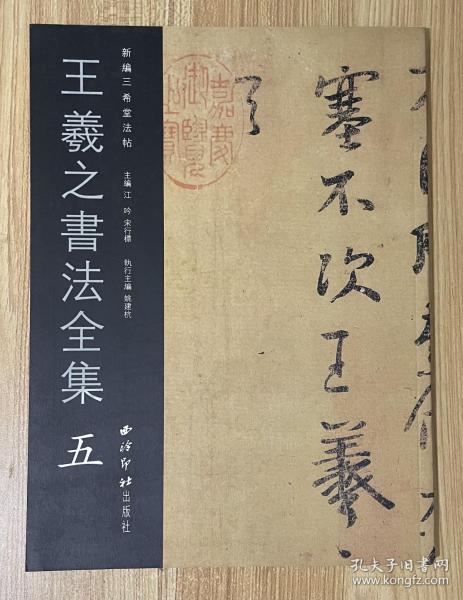 新編三希堂法帖
王羲之書法全集 五
主編 江 吟 宋行標
執行主編 姚建杭
西泠印社出版社
塞不次王羲
嘉慶
御覽
之寶
孔夫子旧书网
www.kongfz.com